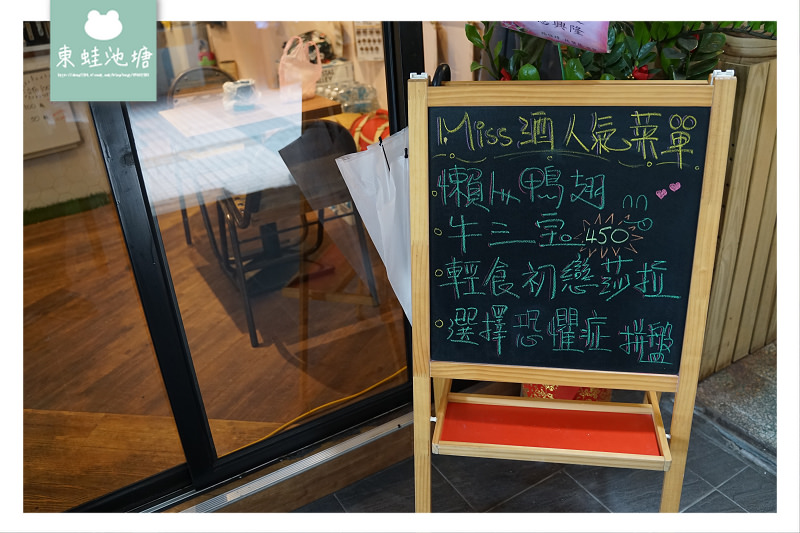 東蛙池塘
興隆
Miss酒人氣菜單
懶人鴨翅
牛三宝 450
輕食初戀莎拉
選擇恐懼症拼盤